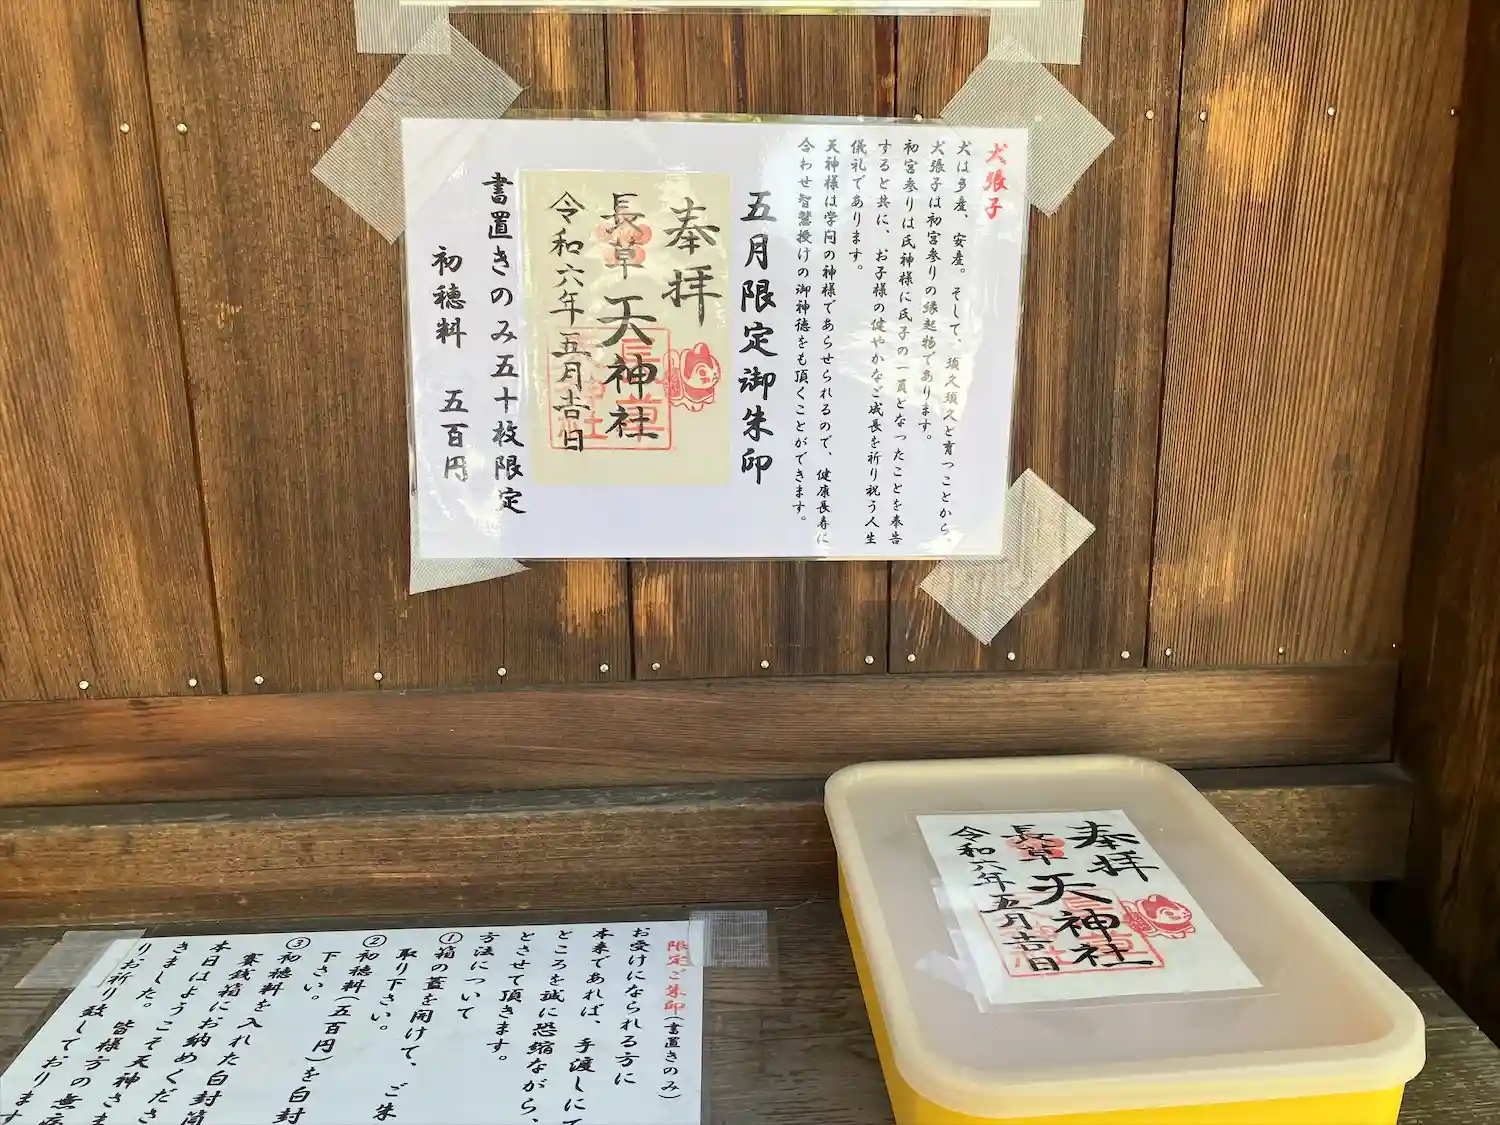 犬張子
犬は多産、安産。そして、須久須久と育つことから、
犬張子は初宮参りの縁起物であります。
初宮参りは氏神様に氏子の一員となったことを奉告
すると共に、お子様の健やかなご成長を祈り祝う人生
儀礼であります。
天神様は学問の神様であらせられるので、健康長寿に
合わせ智慧授けの御神徳をも頂くことができます。
五月限定御朱印
奉拝
長草天神社
令和六年五月吉日
書置きのみ五十枚限定
初穂料 五百円
奉拝
長草天神社
令和六年五月吉日
限定ご朱印(書置きのみ)
お受けになられる方に
本来であれば、手渡しにて
ところを誠に恐縮ながら、
とさせて頂きます。
方法について
①箱の蓋を開けて、ご朱
取り下さい。
②初穂料(五百円)を白封
下さい。
③初穂料を入れた白封筒
賽銭箱にお納めくださ
本日はようこそ天神さま
きました。 皆様方の無病
りお祈り致しております